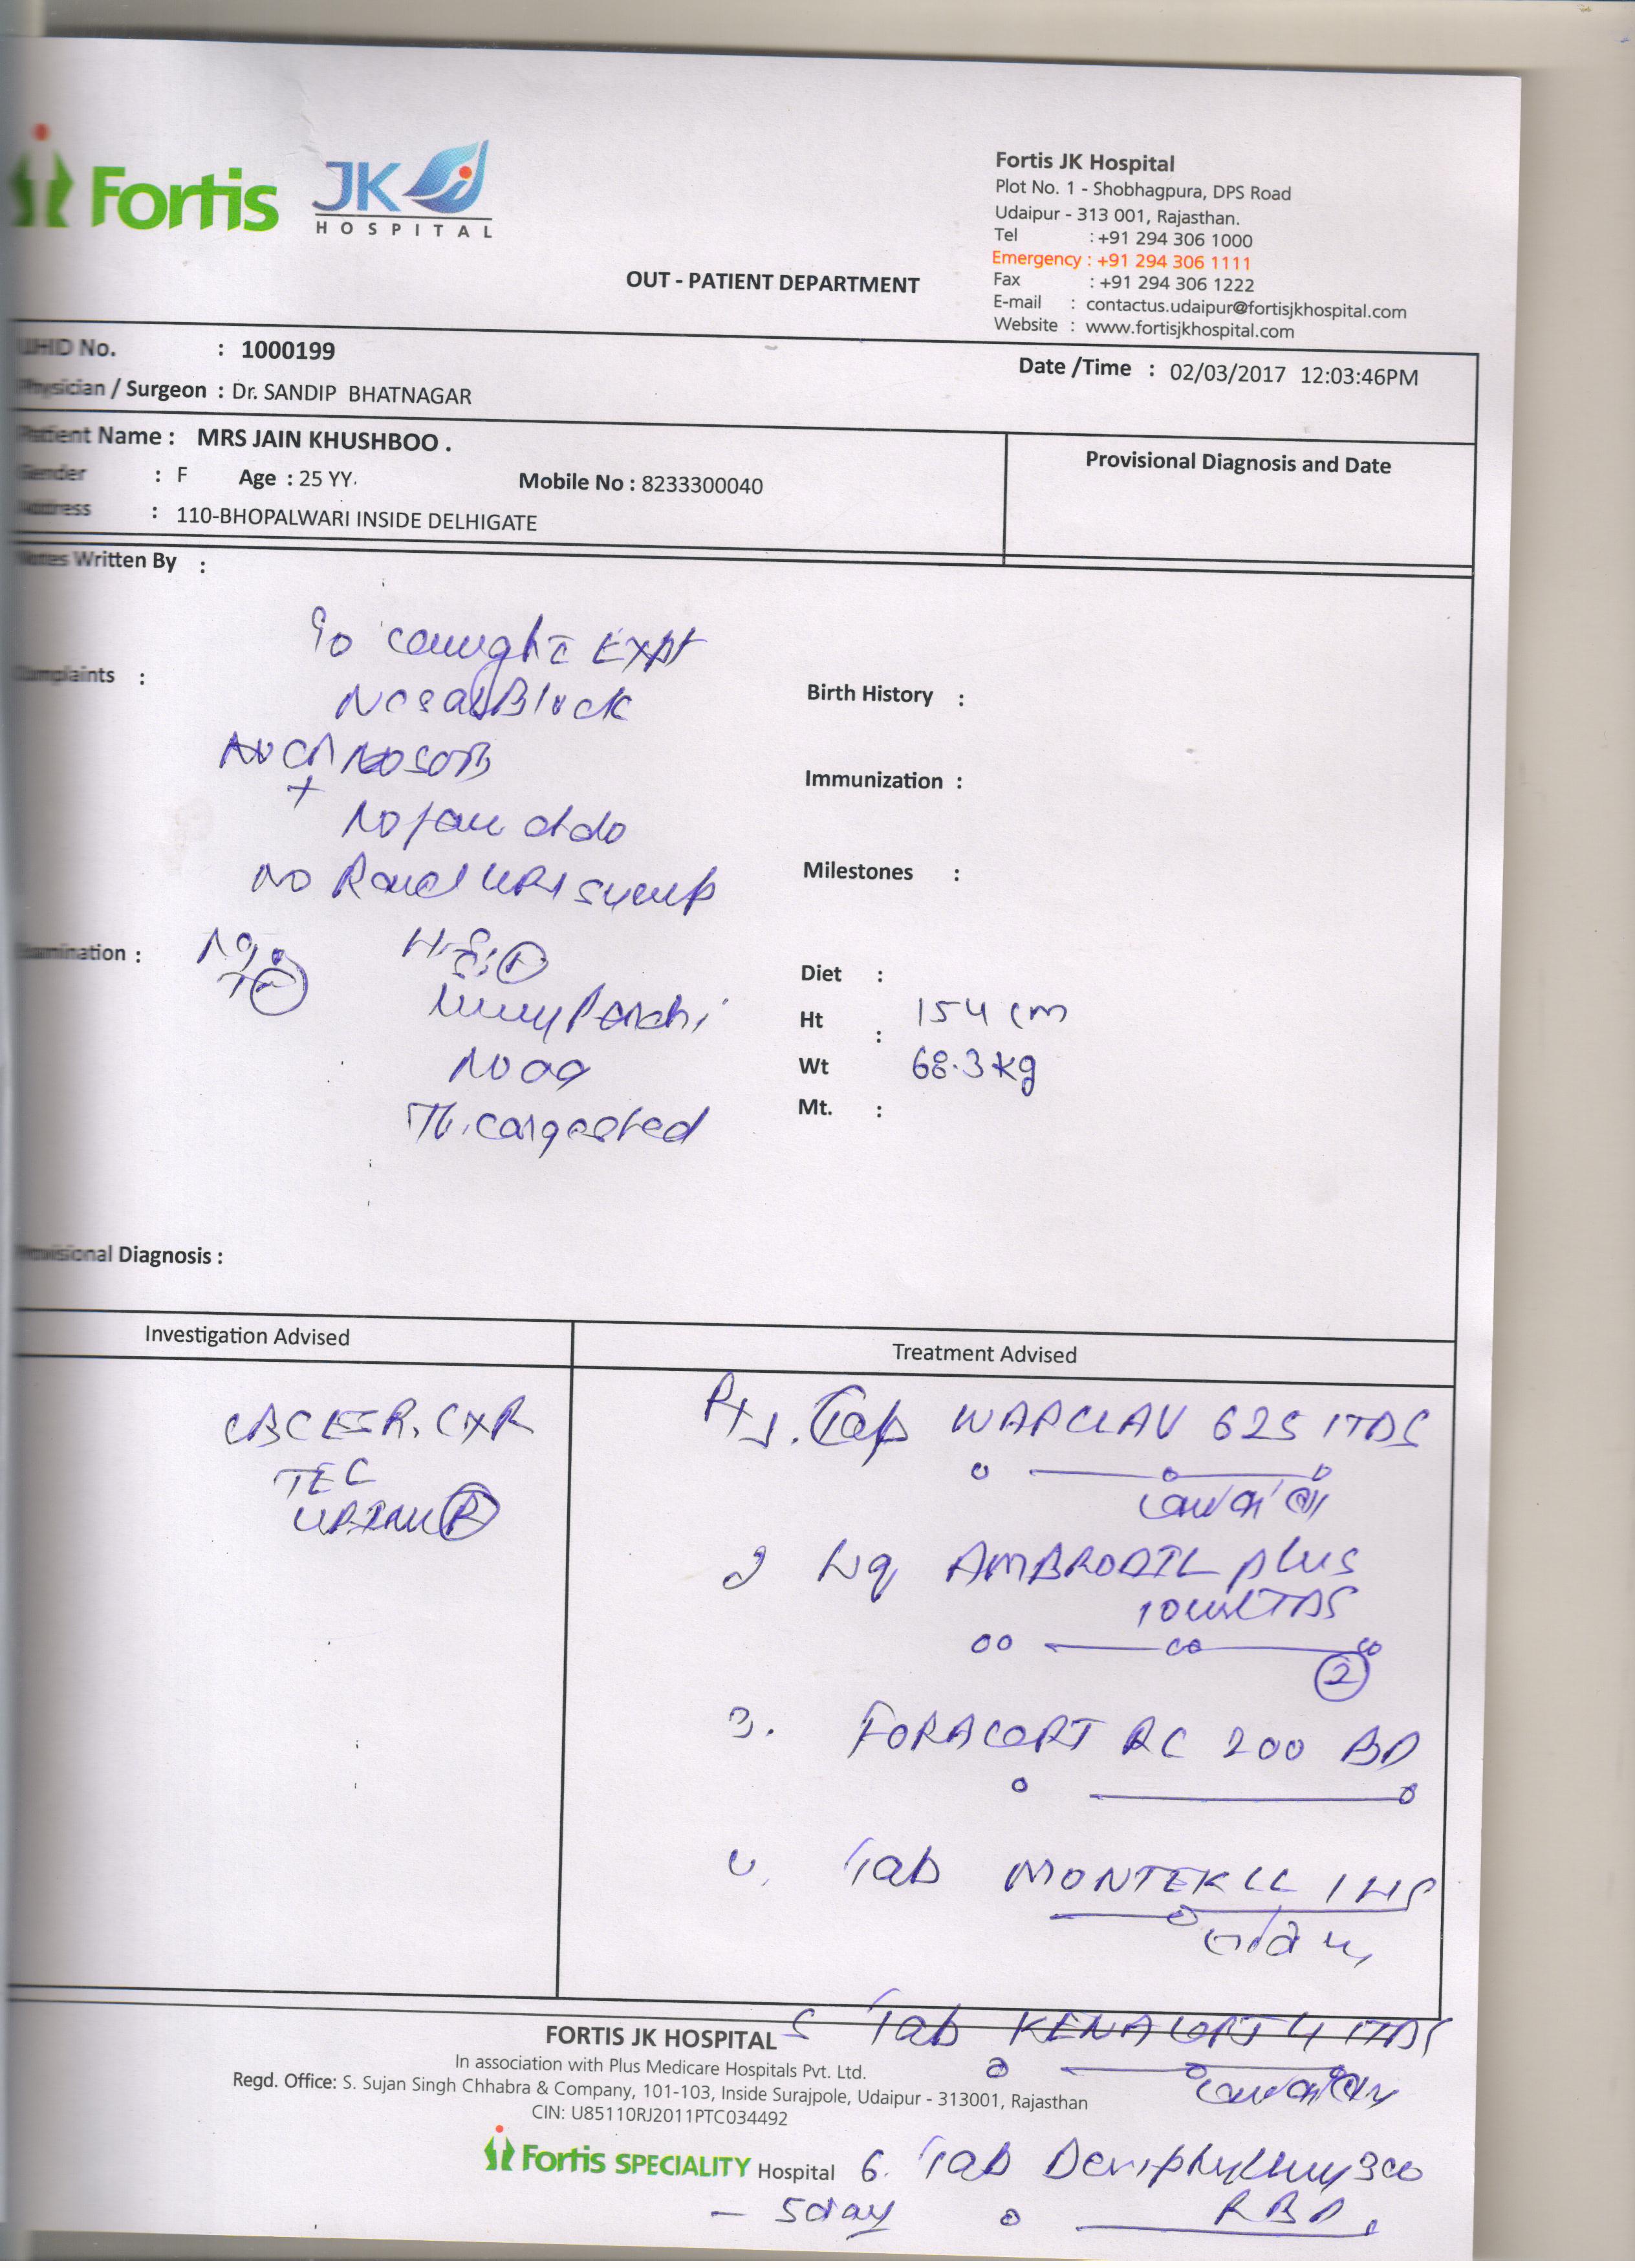 Fortis JK
HOSPITAL
Fortis JK Hospital
Plot No. 1 - Shobhagpura, DPS Road
Udaipur - 313 001, Rajasthan.
Tel : +91 294 306 1000
Emergency : +91 294 306 1111
Fax : +91 294 306 1222
E-mail : contactus.udaipur@fortisjkhospital.com
Website : www.fortisjkhospital.com
OUT - PATIENT DEPARTMENT
UHID No. : 1000199
Date /Time : 02/03/2017 12:03:46PM
Physician / Surgeon : Dr. SANDIP BHATNAGAR
Patient Name : MRS JAIN KHUSHBOO .
Gender : F Age : 25 YY. Mobile No : 8233300040
Address : 110-BHOPALWARI INSIDE DELHIGATE
Provisional Diagnosis and Date
Notes Written By :
Expt
Complaints :
Nasal Block
No SOB
No
No
Birth History :
Immunization :
Milestones :
Examination :
Th. congested
Diet :
Ht : 154 cm
Wt 68.3 kg
Mt. :
Provisional Diagnosis :
Investigation Advised
CBC ESR, CXR
TEC
Treatment Advised
1. WARCLAV 625 1TDS
2 AMBRODIL plus
10ml TDS
2
3. FORACORT RC 200 BD
4. Tab MONTEK LC 1 HS
5 Tab KENACORT 4 1TDS
FORTIS JK HOSPITAL
In association with Plus Medicare Hospitals Pvt. Ltd.
Regd. Office: S. Sujan Singh Chhabra & Company, 101-103, Inside Surajpole, Udaipur - 313001, Rajasthan
CIN: U85110RJ2011PTC034492
Fortis SPECIALITY Hospital
6. Tab Deriphyllin 300
R BD
- 5day